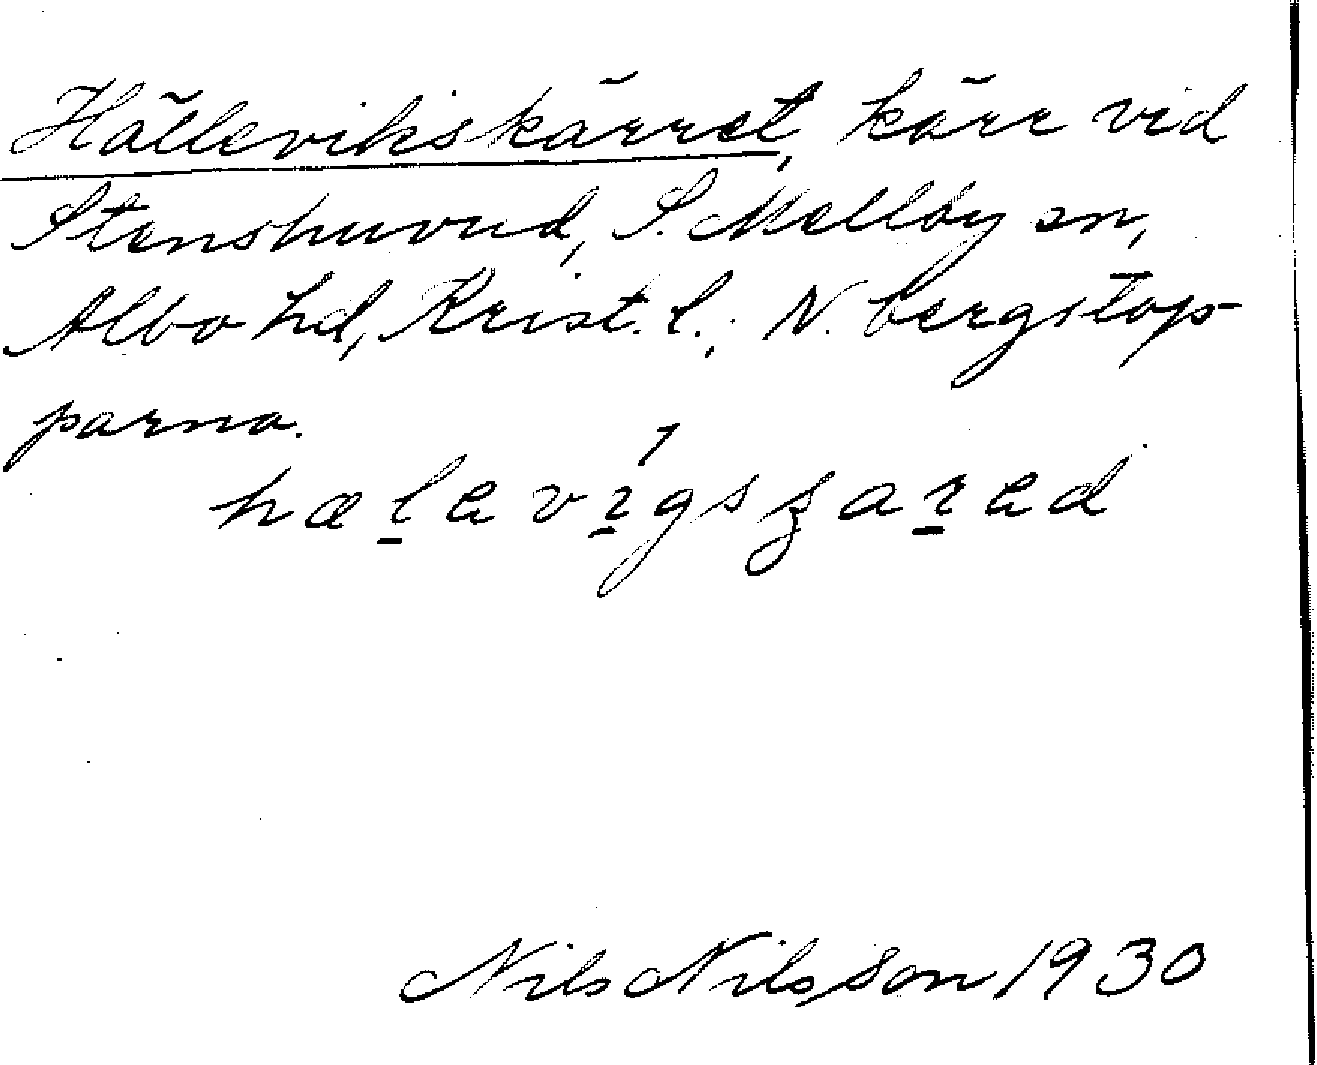 Hällevikskärret, kärr vid
Stenshuvud, S. Mellby sn,
Albo hd, Krist. l.; N. bergstop-
parna.
hælevı́gsʒarad
Nils Nilsson 1930